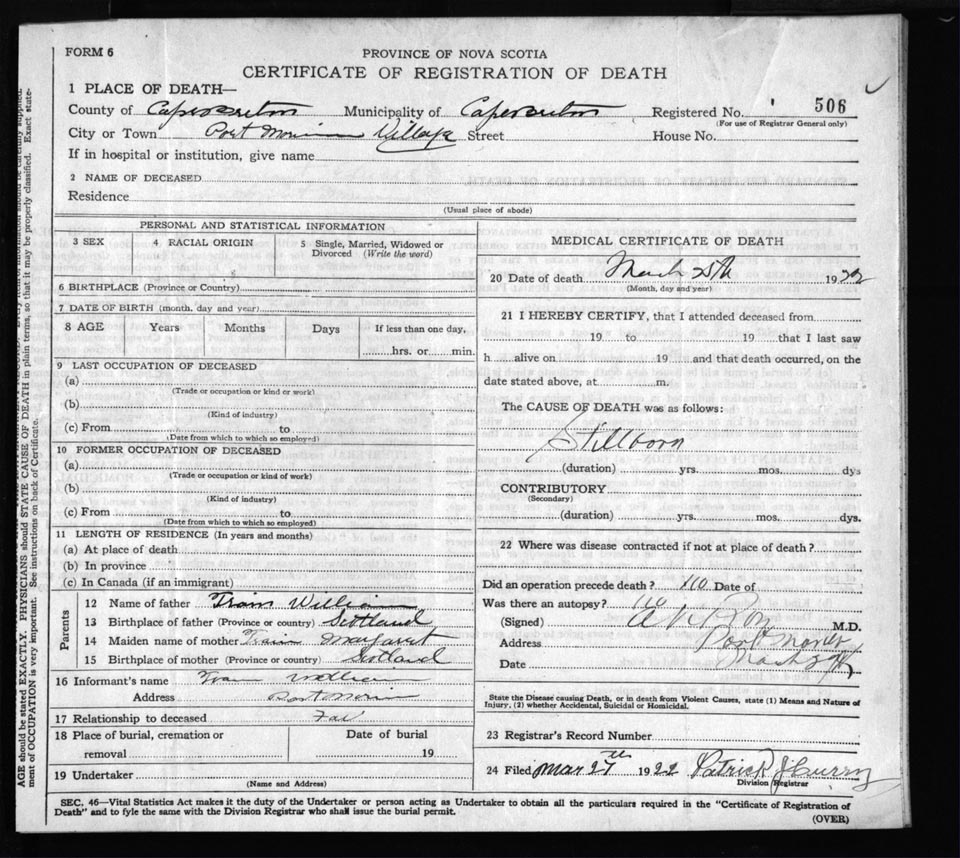 FORM 6
PROVINCE OF NOVA SCOTIA
CERTIFICATE OF REGISTRATION OF DEATH
1 PLACE OF DEATH—
County of Cape Breton Municipality of Cape Breton Registered No. 506
(For use of Registrar General only)
City or Town Port Morien Village Street House No.
If in hospital or institution, give name
2 NAME OF DECEASED
Residence
(Usual place of abode)
PERSONAL AND STATISTICAL INFORMATION
3 SEX
4 RACIAL ORIGIN
5 Single, Married, Widowed or Divorced (Write the word)
6 BIRTHPLACE (Province or Country)
7 DATE OF BIRTH (month, day and year)
8 AGE Years Months Days If less than one day,
hrs. or min.
9 LAST OCCUPATION OF DECEASED
(a)
(Trade or occupation or kind or work)
(b)
(Kind of industry)
(c) From to
(Date from which to which so employed)
10 FORMER OCCUPATION OF DECEASED
(a)
(Trade or occupation or kind of work)
(b)
(Kind of industry)
(c) From to
(Date from which to which so employed)
11 LENGTH OF RESIDENCE (In years and months)
(a) At place of death
(b) In province
(c) In Canada (if an immigrant)
Parents
12 Name of father Train William
13 Birthplace of father (Province or country) Scotland
14 Maiden name of mother Train Margaret
15 Birthplace of mother (Province or country) Scotland
16 Informant's name Train William
Address Port Morien
17 Relationship to deceased
18 Place of burial, cremation or removal
Date of burial
19
19 Undertaker
(Name and Address)
MEDICAL CERTIFICATE OF DEATH
20 Date of death March 25th 1922
(Month, day and year)
21 I HEREBY CERTIFY, that I attended deceased from
19 to 19 that I last saw
h alive on 19 and that death occurred, on the
date stated above, at m.
The CAUSE OF DEATH was as follows:
Stillborn
(duration) yrs. mos. dys
CONTRIBUTORY
(Secondary)
(duration) yrs. mos. dys.
22 Where was disease contracted if not at place of death?
Did an operation precede death? no Date of
Was there an autopsy? no
(Signed) M.D.
Address Port Morien
Date
State the Disease causing Death, or in death from Violent Causes, state (1) Means and Nature of
Injury, (2) whether Accidental, Suicidal or Homicidal.
23 Registrar's Record Number
24 Filed Mar 27th 1922 Patrick J Curry
Division Registrar
SEC. 46—Vital Statistics Act makes it the duty of the Undertaker or person acting as Undertaker to obtain all the particulars required in the "Certificate of Registration of
Death" and to fyle the same with the Division Registrar who shall issue the burial permit.
(OVER)
AGE should be stated EXACTLY. PHYSICIANS should STATE CAUSE OF DEATH in plain terms, so that it may be properly classified. Exact state-
ment of OCCUPATION is very important. See instructions on back of Certificate.